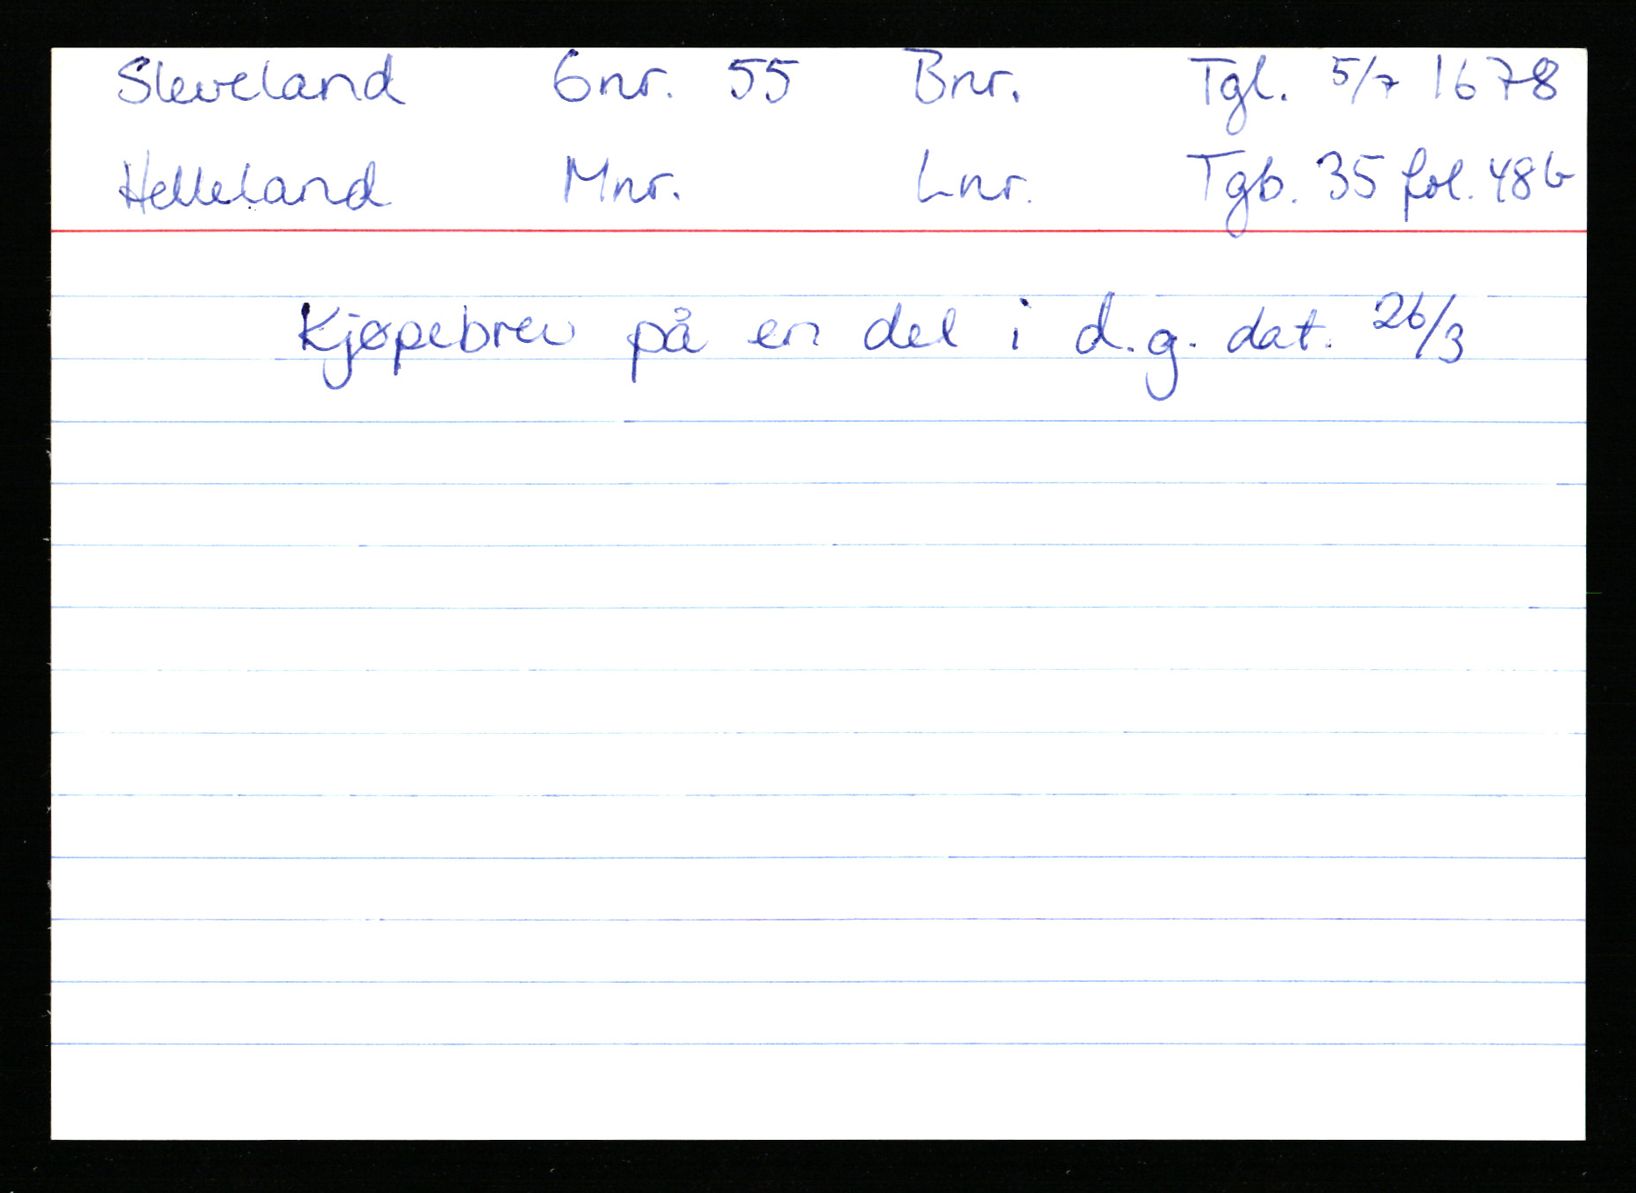 Sleveland Gnr. 55 Bnr. Tgl. 5/7 1678
Helleland Mnr. Lnr. Tgb. 35 fol. 48b
Kjøpebrev på en del i d.g. dat. 26/3